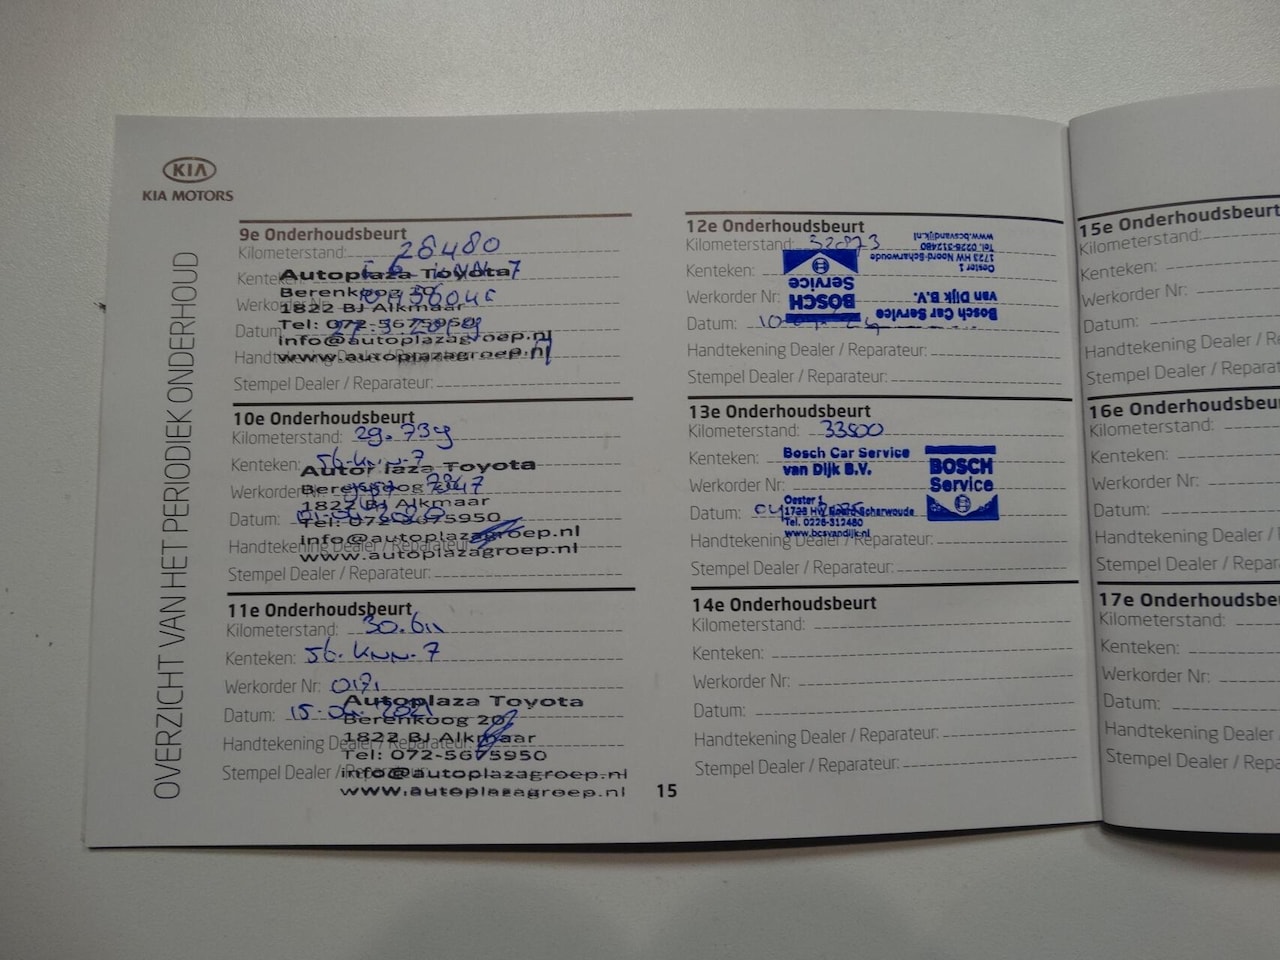 KIA
KIA MOTORS
OVERZICHT VAN HET PERIODIEK ONDERHOUD
9e Onderhoudsbeurt
Kilometerstand: 28480
Kenteken:
Autoplaza Toyota
Berenkoog 20
Werkorder Nr:
1822 BJ Alkmaar
Datum:
Tel: 072-5675950
info@autoplazagroep.nl
www.autoplazagroep.nl
Stempel Dealer / Reparateur:
10e Onderhoudsbeurt
Kilometerstand: 29.739
Kenteken: 56-KNN-7
Autoplaza Toyota
Werkorder Nr:
1822 BJ Alkmaar
Datum:
Tel: 072-5675950
info@autoplazagroep.nl
Handtekening Dealer / Reparateur:
www.autoplazagroep.nl
Stempel Dealer / Reparateur:
11e Onderhoudsbeurt
Kilometerstand: 30.611
Kenteken: 56-KNN-7
Werkorder Nr:
Autoplaza Toyota
Datum: 15-04-2021
Berenkoog 20
1822 BJ Alkmaar
Handtekening Dealer / Reparateur:
Tel: 072-5675950
Stempel Dealer / Reparateur:
info@autoplazagroep.nl
www.autoplazagroep.nl
15
12e Onderhoudsbeurt
Kilometerstand:
Kenteken:
Werkorder Nr:
Datum:
Bosch Car Service
van Dijk B.V.
Oester 1
1723 HW Noord-Scharwoude
Tel. 0226-312480
www.bcsvandijk.nl
BOSCH
Service
Handtekening Dealer / Reparateur:
Stempel Dealer / Reparateur:
13e Onderhoudsbeurt
Kilometerstand: 33500
Kenteken:
Bosch Car Service
van Dijk B.V.
BOSCH
Service
Werkorder Nr:
Oester 1
Datum:
1723 HW Noord-Scharwoude
Tel. 0226-312480
www.bcsvandijk.nl
Handtekening Dealer / Reparateur:
Stempel Dealer / Reparateur:
14e Onderhoudsbeurt
Kilometerstand:
Kenteken:
Werkorder Nr:
Datum:
Handtekening Dealer / Reparateur:
Stempel Dealer / Reparateur:
15e Onderhoudsbeurt
Kilometerstand:
Kenteken:
Werkorder Nr:
Datum:
Handtekening Dealer / R
Stempel Dealer / Reparat
16e Onderhoudsbeu
Kilometerstand:
Kenteken:
Werkorder Nr:
Datum:
Handtekening Dealer /
Stempel Dealer / Repar
17e Onderhoudsbe
Kilometerstand:
Kenteken:
Werkorder Nr:
Datum:
Handtekening Dealer
Stempel Dealer / Repa